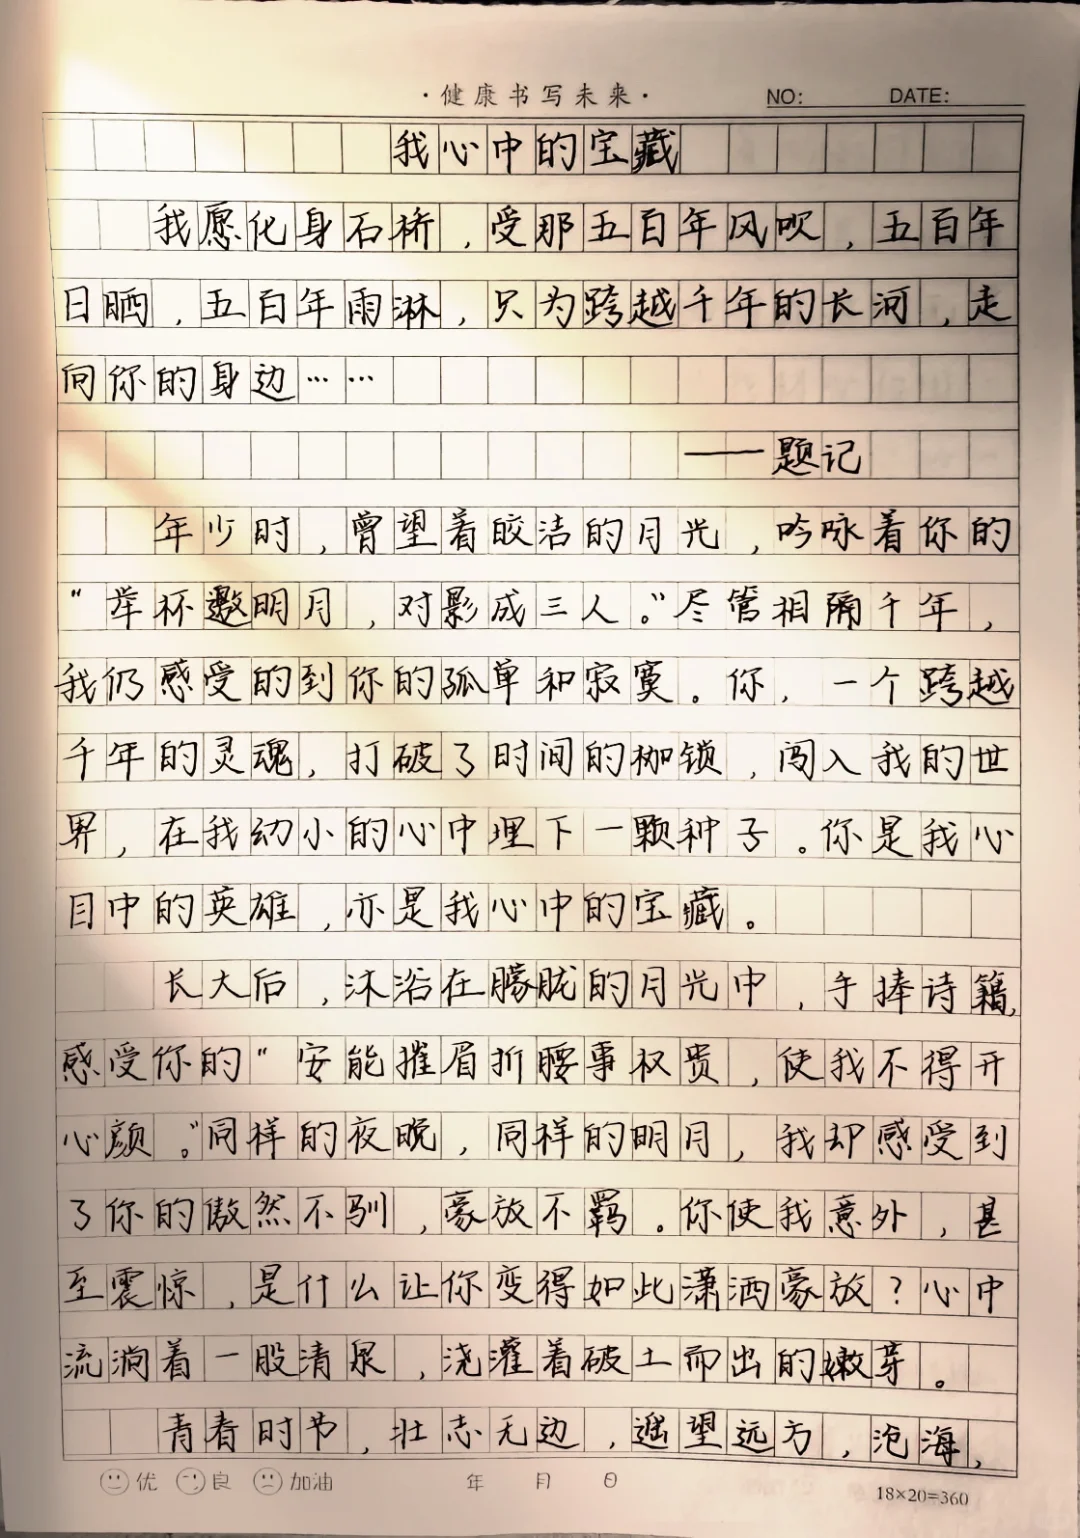 ·健康书写未来·
NO: DATE:
我心中的宝藏
我愿化身石桥，受那五百年风吹，五百年
日晒，五百年雨淋，只为跨越千年的长河，走
向你的身边……
——题记
年少时，曾望着皎洁的月光，吟咏着你的
“举杯邀明月，对影成三人。”尽管相隔千年，
我仍感受的到你的孤单和寂寞。你，一个跨越
千年的灵魂，打破了时间的枷锁，闯入我的世
界，在我幼小的心中埋下一颗种子。你是我心
目中的英雄，亦是我心中的宝藏。
长大后，沐浴在朦胧的月光中，手捧诗籍，
感受你的“安能摧眉折腰事权贵，使我不得开
心颜。”同样的夜晚，同样的明月，我却感受到
了你的傲然不驯，豪放不羁。你使我意外，甚
至震惊，是什么让你变得如此潇洒豪放？心中
流淌着一股清泉，浇灌着破土而出的嫩芽。
青春时节，壮志无边，遥望远方，沧海，
优 良 加油 年 月 日 18×20=360